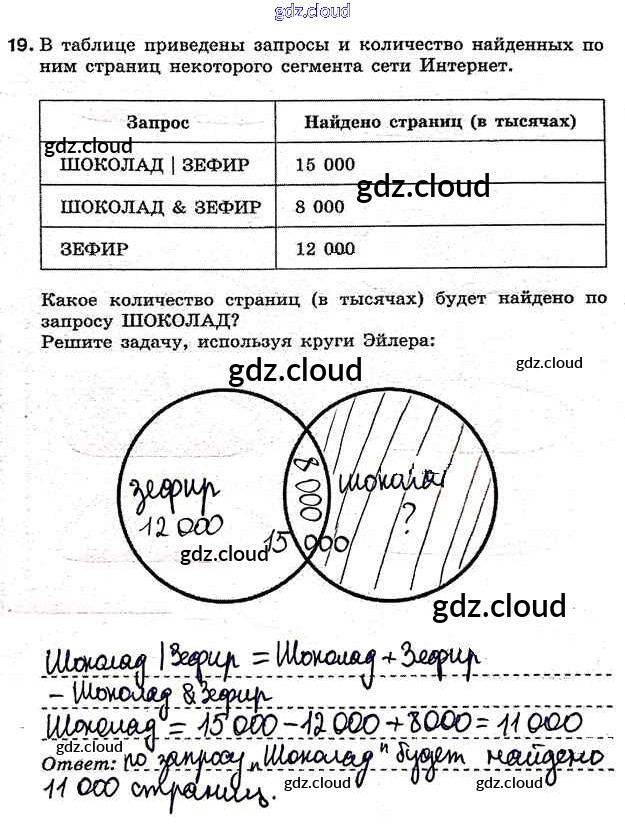 gdz.cloud
19. В таблице приведены запросы и количество найденных по
ним страниц некоторого сегмента сети Интернет.
Запрос Найдено страниц (в тысячах)
gdz.cloud
ШОКОЛАД | ЗЕФИР 15 000
gdz.cloud
ШОКОЛАД & ЗЕФИР 8 000
ЗЕФИР 12 000
Какое количество страниц (в тысячах) будет найдено по
запросу ШОКОЛАД?
Решите задачу, используя круги Эйлера:
gdz.cloud
gdz.cloud
8 000
зефир
шоколад
12 000
?
15 000
gdz.cloud
gdz.cloud
Шоколад | Зефир = Шоколад + Зефир
- Шоколад & Зефир
Шоколад = 15 000 - 12 000 + 8000 = 11 000
gdz.cloud
gdz.cloud
gdz.cloud
Ответ: по запросу „Шоколад" будет найдено
11 000 страниц.
gdz.cloud
gdz.cloud